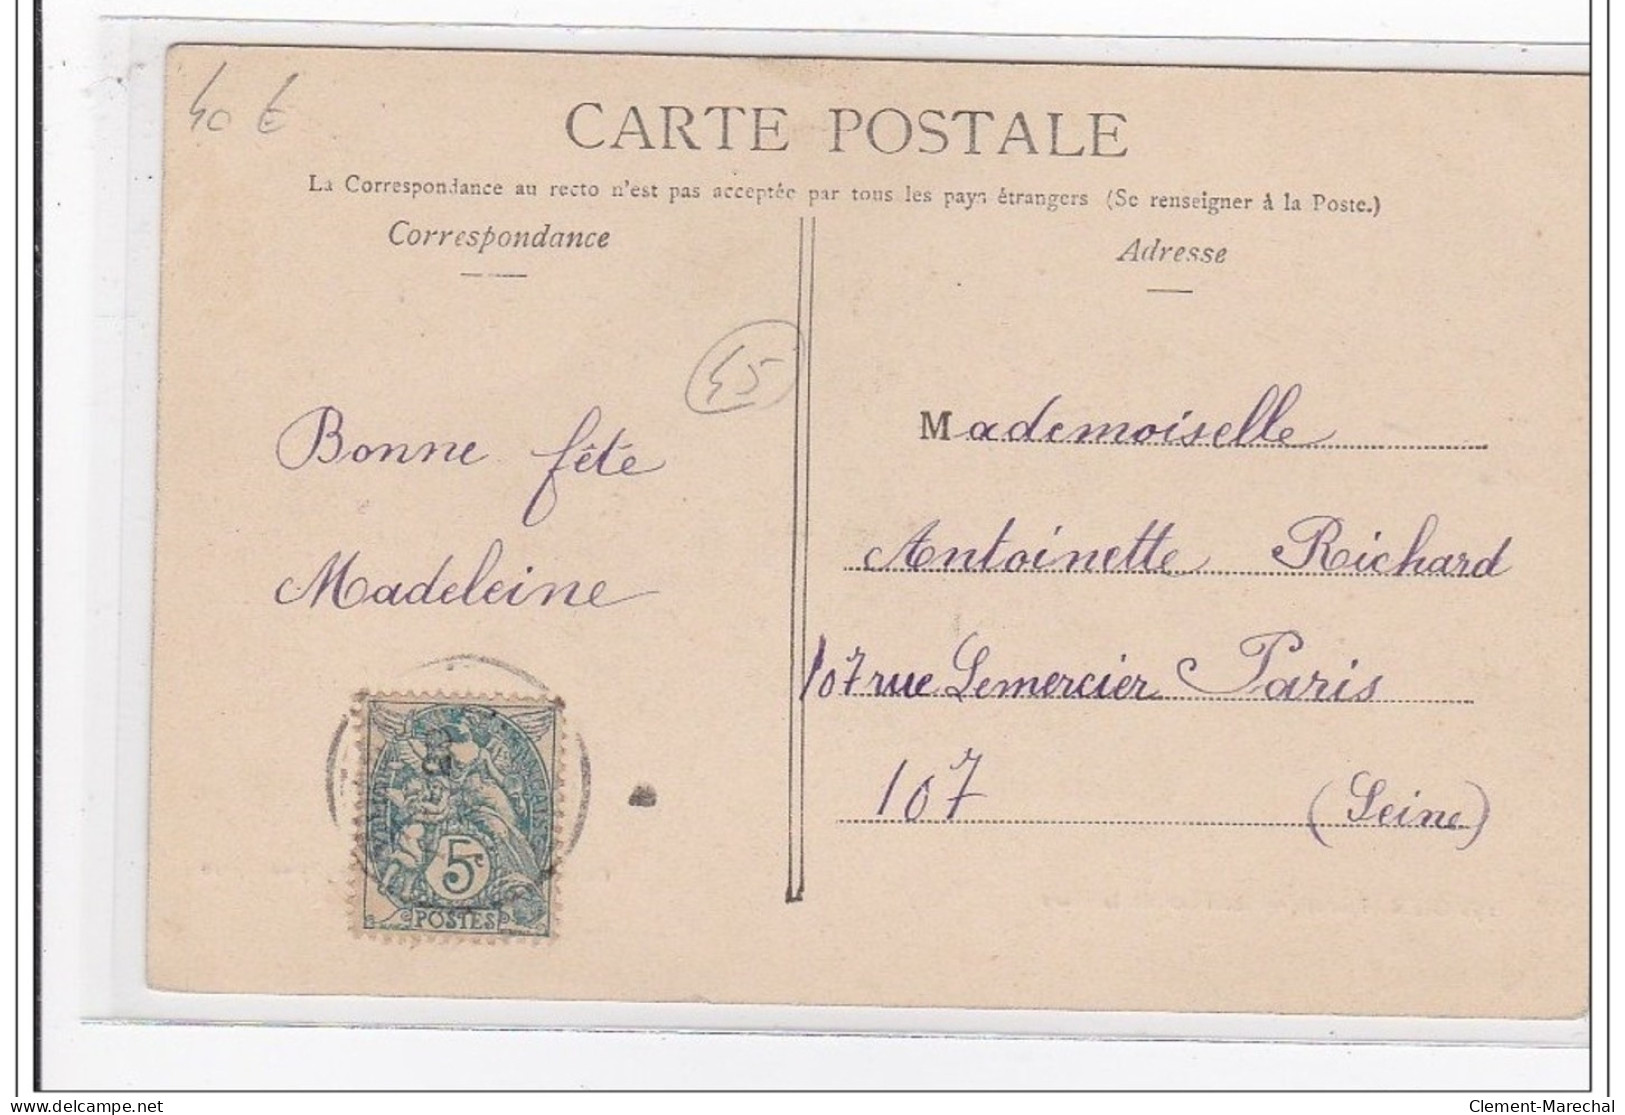 40 €
CARTE POSTALE
La Correspondance au recto n'est pas acceptée par tous les pays étrangers (Se renseigner à la Poste.)
Correspondance
Adresse
45
Bonne fête
Madeleine
Mademoiselle
Antoinette Richard
107 rue Lemercier Paris
107 (Seine)
5c
POSTES
delcampe.net
Clement-Marechal